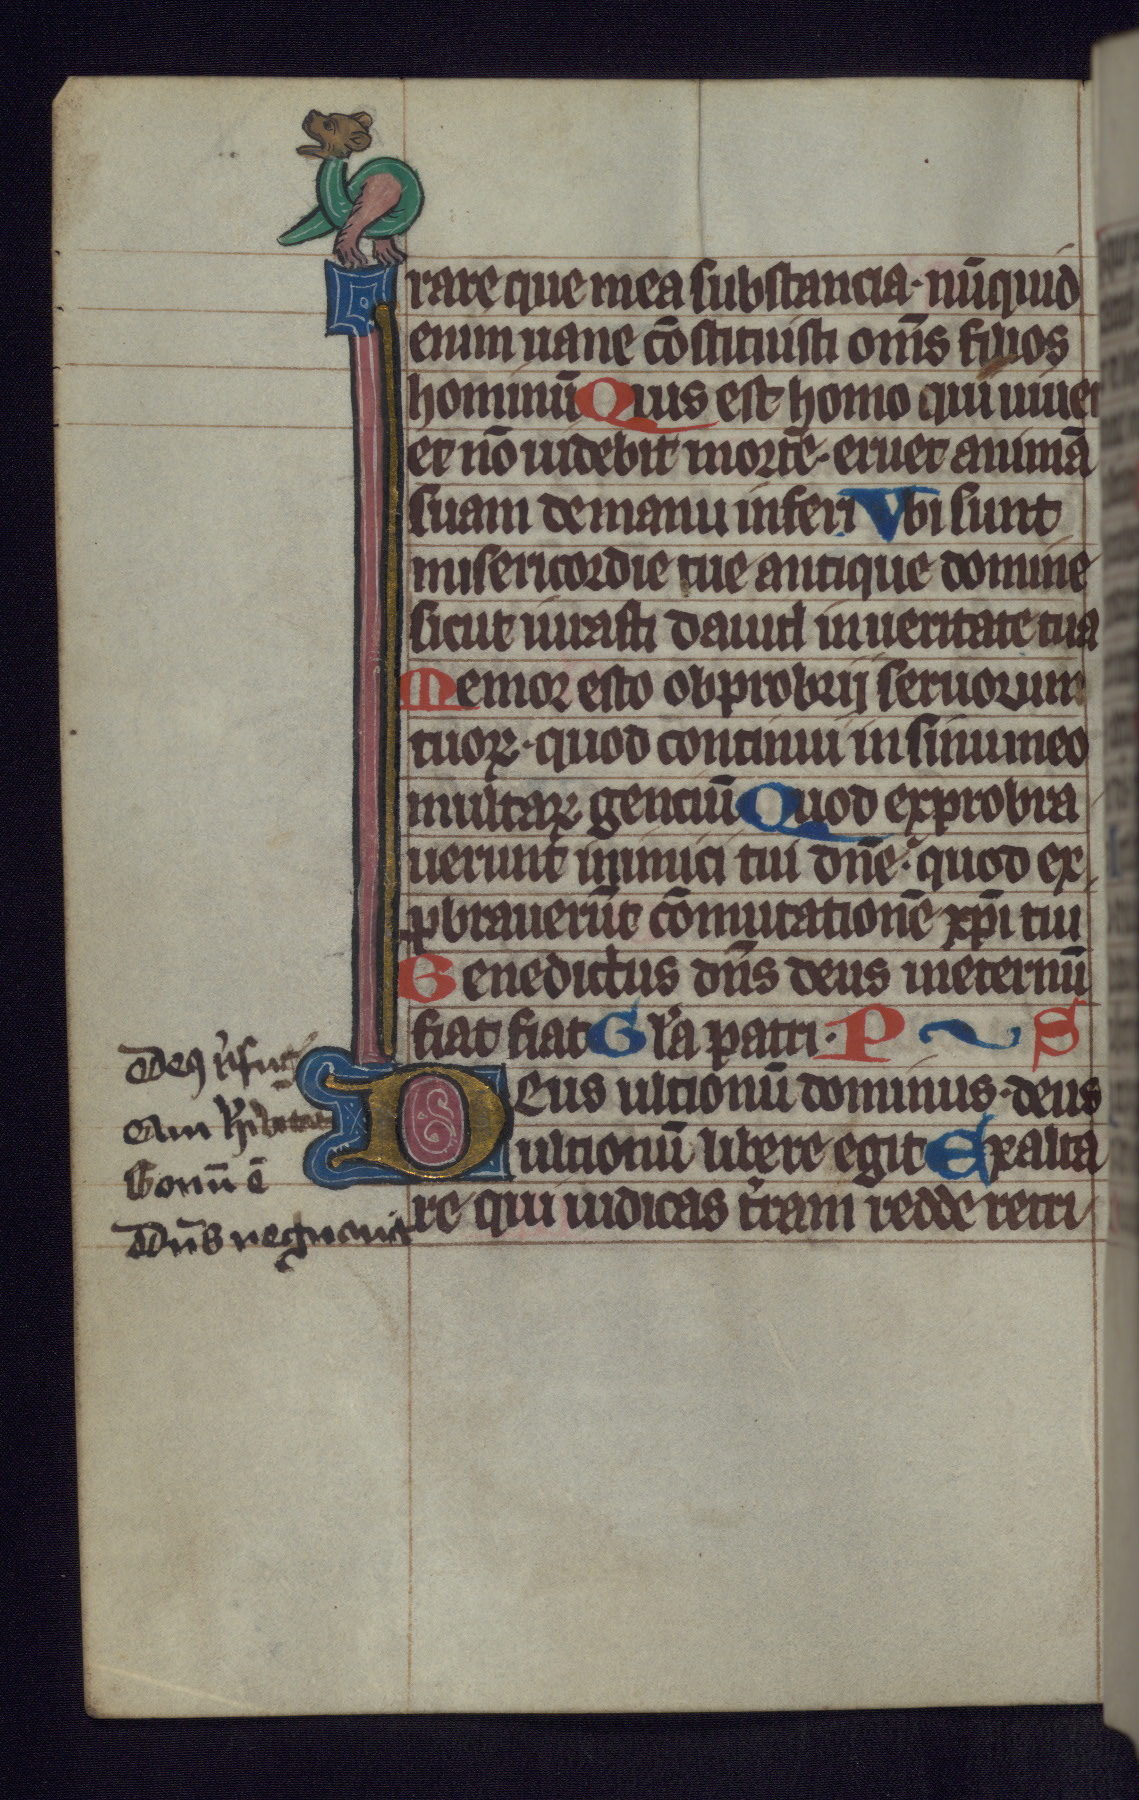 rare que mea substancia· nūquid
enim uane cōstituisti om̄s filios
hominū Quis est homo qui uiuet
et nō uidebit mortē· eruet animā
suam de manu inferi Vbi sunt
misericordie tue antique domine
sicut iurasti dauid in ueritate tua
Memor esto obprobrij seruorum
tuoꝝ· quod continui in sinu meo
multaꝝ genciū Quod exprobra
uerunt inimici tui dn̄e· quod ex
ꝓbrauerūt cōmutationē xp̄i tui
Benedictus dn̄s deus in eternū
fiat fiat Gl'a patri· P S
Deus ultionū dominus· deus
ultionū libere egit Exalta
re qui iudicas t'ram redde retri
Bonū ē
Dn̄s regnauit